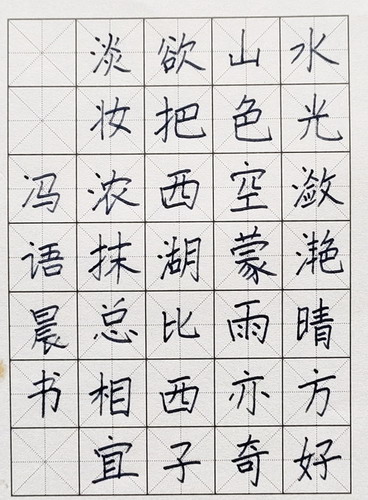 水光潋滟晴方好
山色空蒙雨亦奇
欲把西湖比西子
淡妆浓抹总相宜
冯语晨书